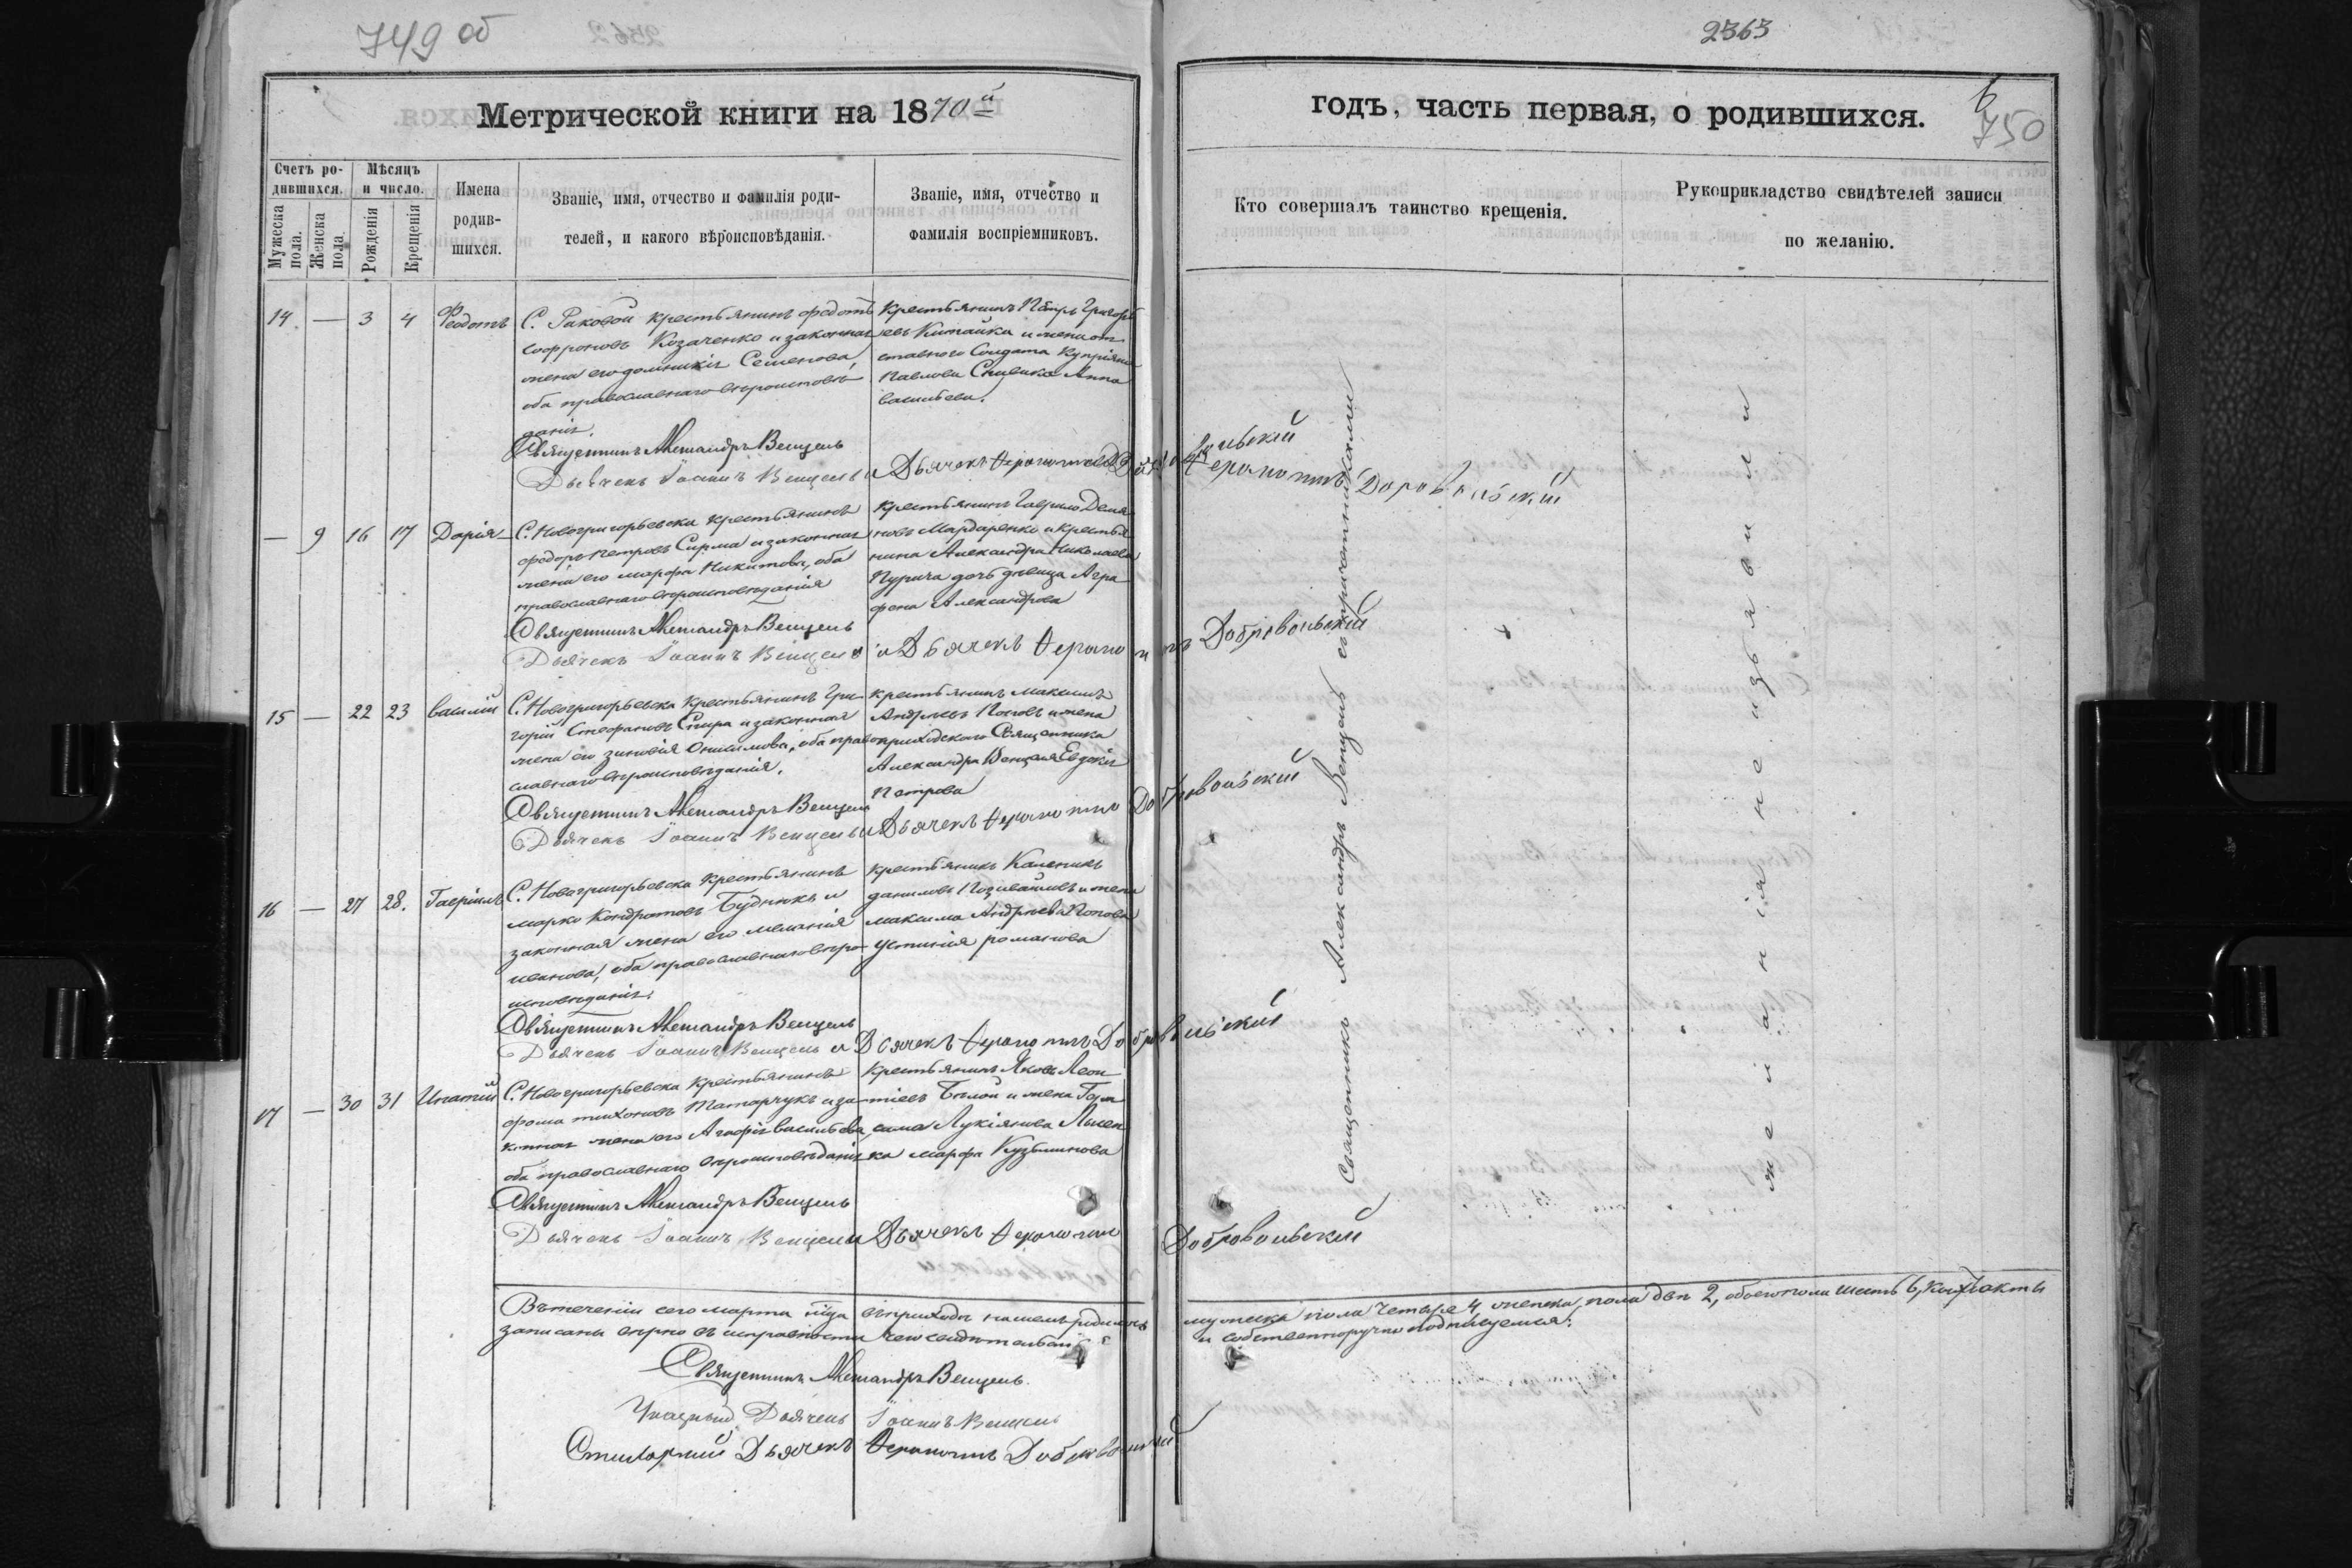 749 об
2363
Метрической книги на 1870й
годъ, часть первая, о родившихся.
6
750
Счетъ родившихся.
Мѣсяцъ и число.
Мужеска пола.
Женска пола
Рожденія
Крещенія
Имена родившихся.
Званіе, имя, отчество и фамилія родителей, и какого вѣроисповѣданія.
Званіе, имя, отчество и фамилія воспріемниковъ.
Кто совершалъ таинство крещенія.
Рукоприкладство свидѣтелей записи по желанію.
14 — 3 4 Феодотъ
С. Раковой крестьянинъ федотъ
софроновъ Козаченко и законная
жена его домникія Семенова,
оба православнаго вѣроисповѣ
данія.
Крестьянинъ Пётръ Григорь
евъ Китайка и жена от
ставного Солдата Купріяна
Павлова Спивака Анна
васильева.
Священникъ Александръ Венцель
Дьячекъ Іоаннъ Венцель и Дьячекъ
Добровольскій
— 9 16 17 Дарія
С. Новогригорьевска крестьянинъ
федоръ петровъ Сирма и законная
жена его марфа Никитова, оба
православнаго вѣроисповѣданія
крестьянинъ Гаврило Демя
новъ Мардаренко и крестья
нина Александра Николаева
Пурича дочь дѣвица Агра
фена Александрова
Священникъ Александръ Венцель
Дьячекъ Іоаннъ Венцель и Дьячекъ Добровольскій
15 — 22 23 василій
С. Новогригорьевска крестьянинъ Гри
горій Стефановъ Спира и законная
жена его зиновія Онисимова, оба право
славнаго вѣроисповѣданія.
крестьянинъ максимъ
Андреевъ Поповъ и жена
приходскаго Священника
Александра Венцеля Евдокія
Петрова
Священникъ Александръ Венцель
Дьячекъ Іоаннъ Венцель и Дьячекъ Добровольскій
16 — 27 28. Гавріилъ
С. Новогригорьевска крестьянинъ
марко Кондратовъ Буднюкъ и
законная жена его меланія
иванова, оба православнаго вѣро
исповѣданія.
крестьянинъ Каленикъ
даниловъ и жена
максима Андреева Попова
устинія романова
Священникъ Александръ Венцель
Дьячекъ Іоаннъ Венцель и Дьячекъ Добровольскій
17 — 30 31 Игнатій
С. Новогригорьевска крестьянинъ
фома тихоновъ Татарчукъ и за
конная жена его Агафія васильева,
оба православнаго вѣроисповѣданія
Крестьянинъ Яковъ Леон
тіевъ Бѣлой и жена Гера
сима Лукіянова Лысен
ка марфа Кузьминова
Священникъ Александръ Венцель
Дьячекъ Іоаннъ Венцель и Дьячекъ Добровольскій
Священникъ Александръ Венцель съ причетниками
желанія не изъявили
Въ теченіи сего марта м-ца въ приходѣ нашемъ родилось мужеска пола четыре 4, женска пола двѣ 2, обоего пола шесть 6, акты
записаны вѣрно въ исправности чемъ и собственноручно подписуемся:
Священникъ Александръ Венцель.
Указный Дьячекъ Іоаннъ Венцель
Стихарный Дьячекъ Добровольскій